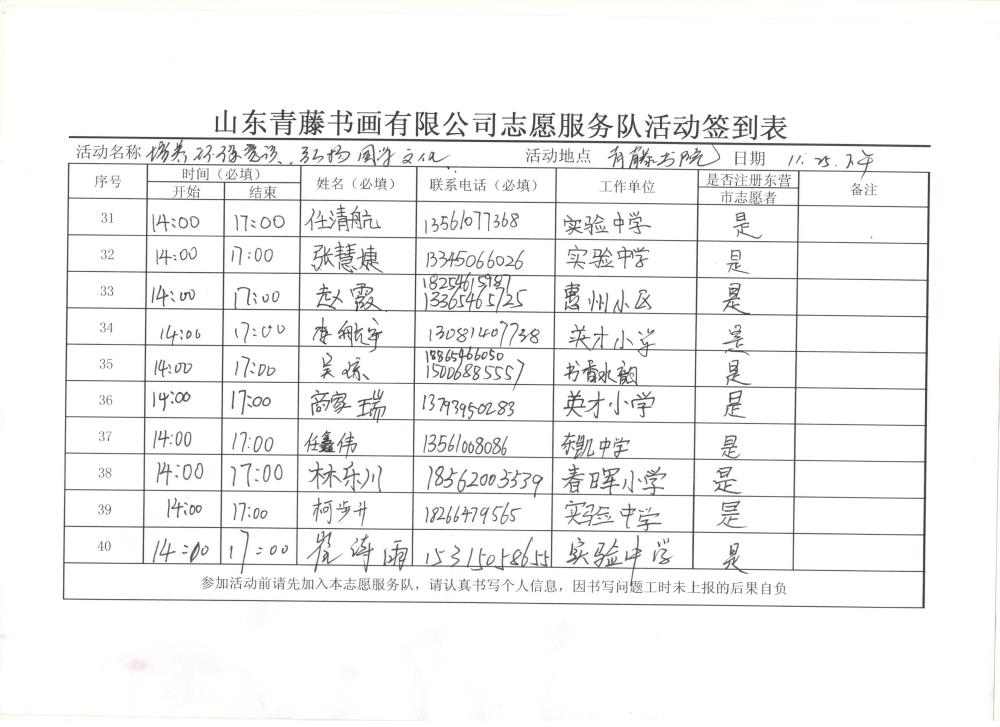 山东青藤书画有限公司志愿服务队活动签到表
活动名称 培养环保意识、弘扬国学文化 活动地点 青藤书院 日期 11.25.下午
序号 时间（必填） 姓名（必填） 联系电话（必填） 工作单位 是否注册东营市志愿者 备注
开始 结束
31 14:00 17:00 任清航 13561077368 实验中学 是
32 14:00 17:00 张慧婕 13345066026 实验中学 是
33 14:00 17:00 赵霞 18254615987 13365465725 惠州小区 是
34 14:00 17:00 13081407738 英才小学 是
35 14:00 17:00 吴 18865466050 15006885557 书香水韵 是
36 14:00 17:00 商家瑞 13793950283 英才小学 是
37 14:00 17:00 任鑫伟 13561008086 东凯中学 是
38 14:00 17:00 林乐川 18562003539 春晖小学 是
39 14:00 17:00 柯步升 18266479565 实验中学 是
40 14:00 17:00 崔诗雨 15315058655 实验中学 是
参加活动前请先加入本志愿服务队，请认真书写个人信息，因书写问题工时未上报的后果自负